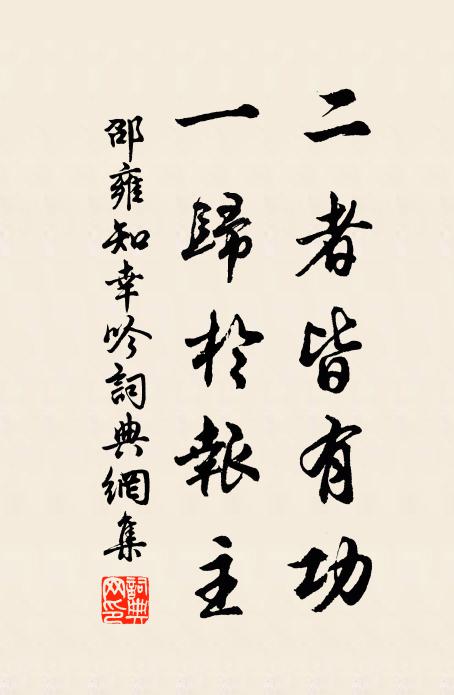 二者皆有功
一歸於報主
邵雍知幸吟詞典網集
詞典网印